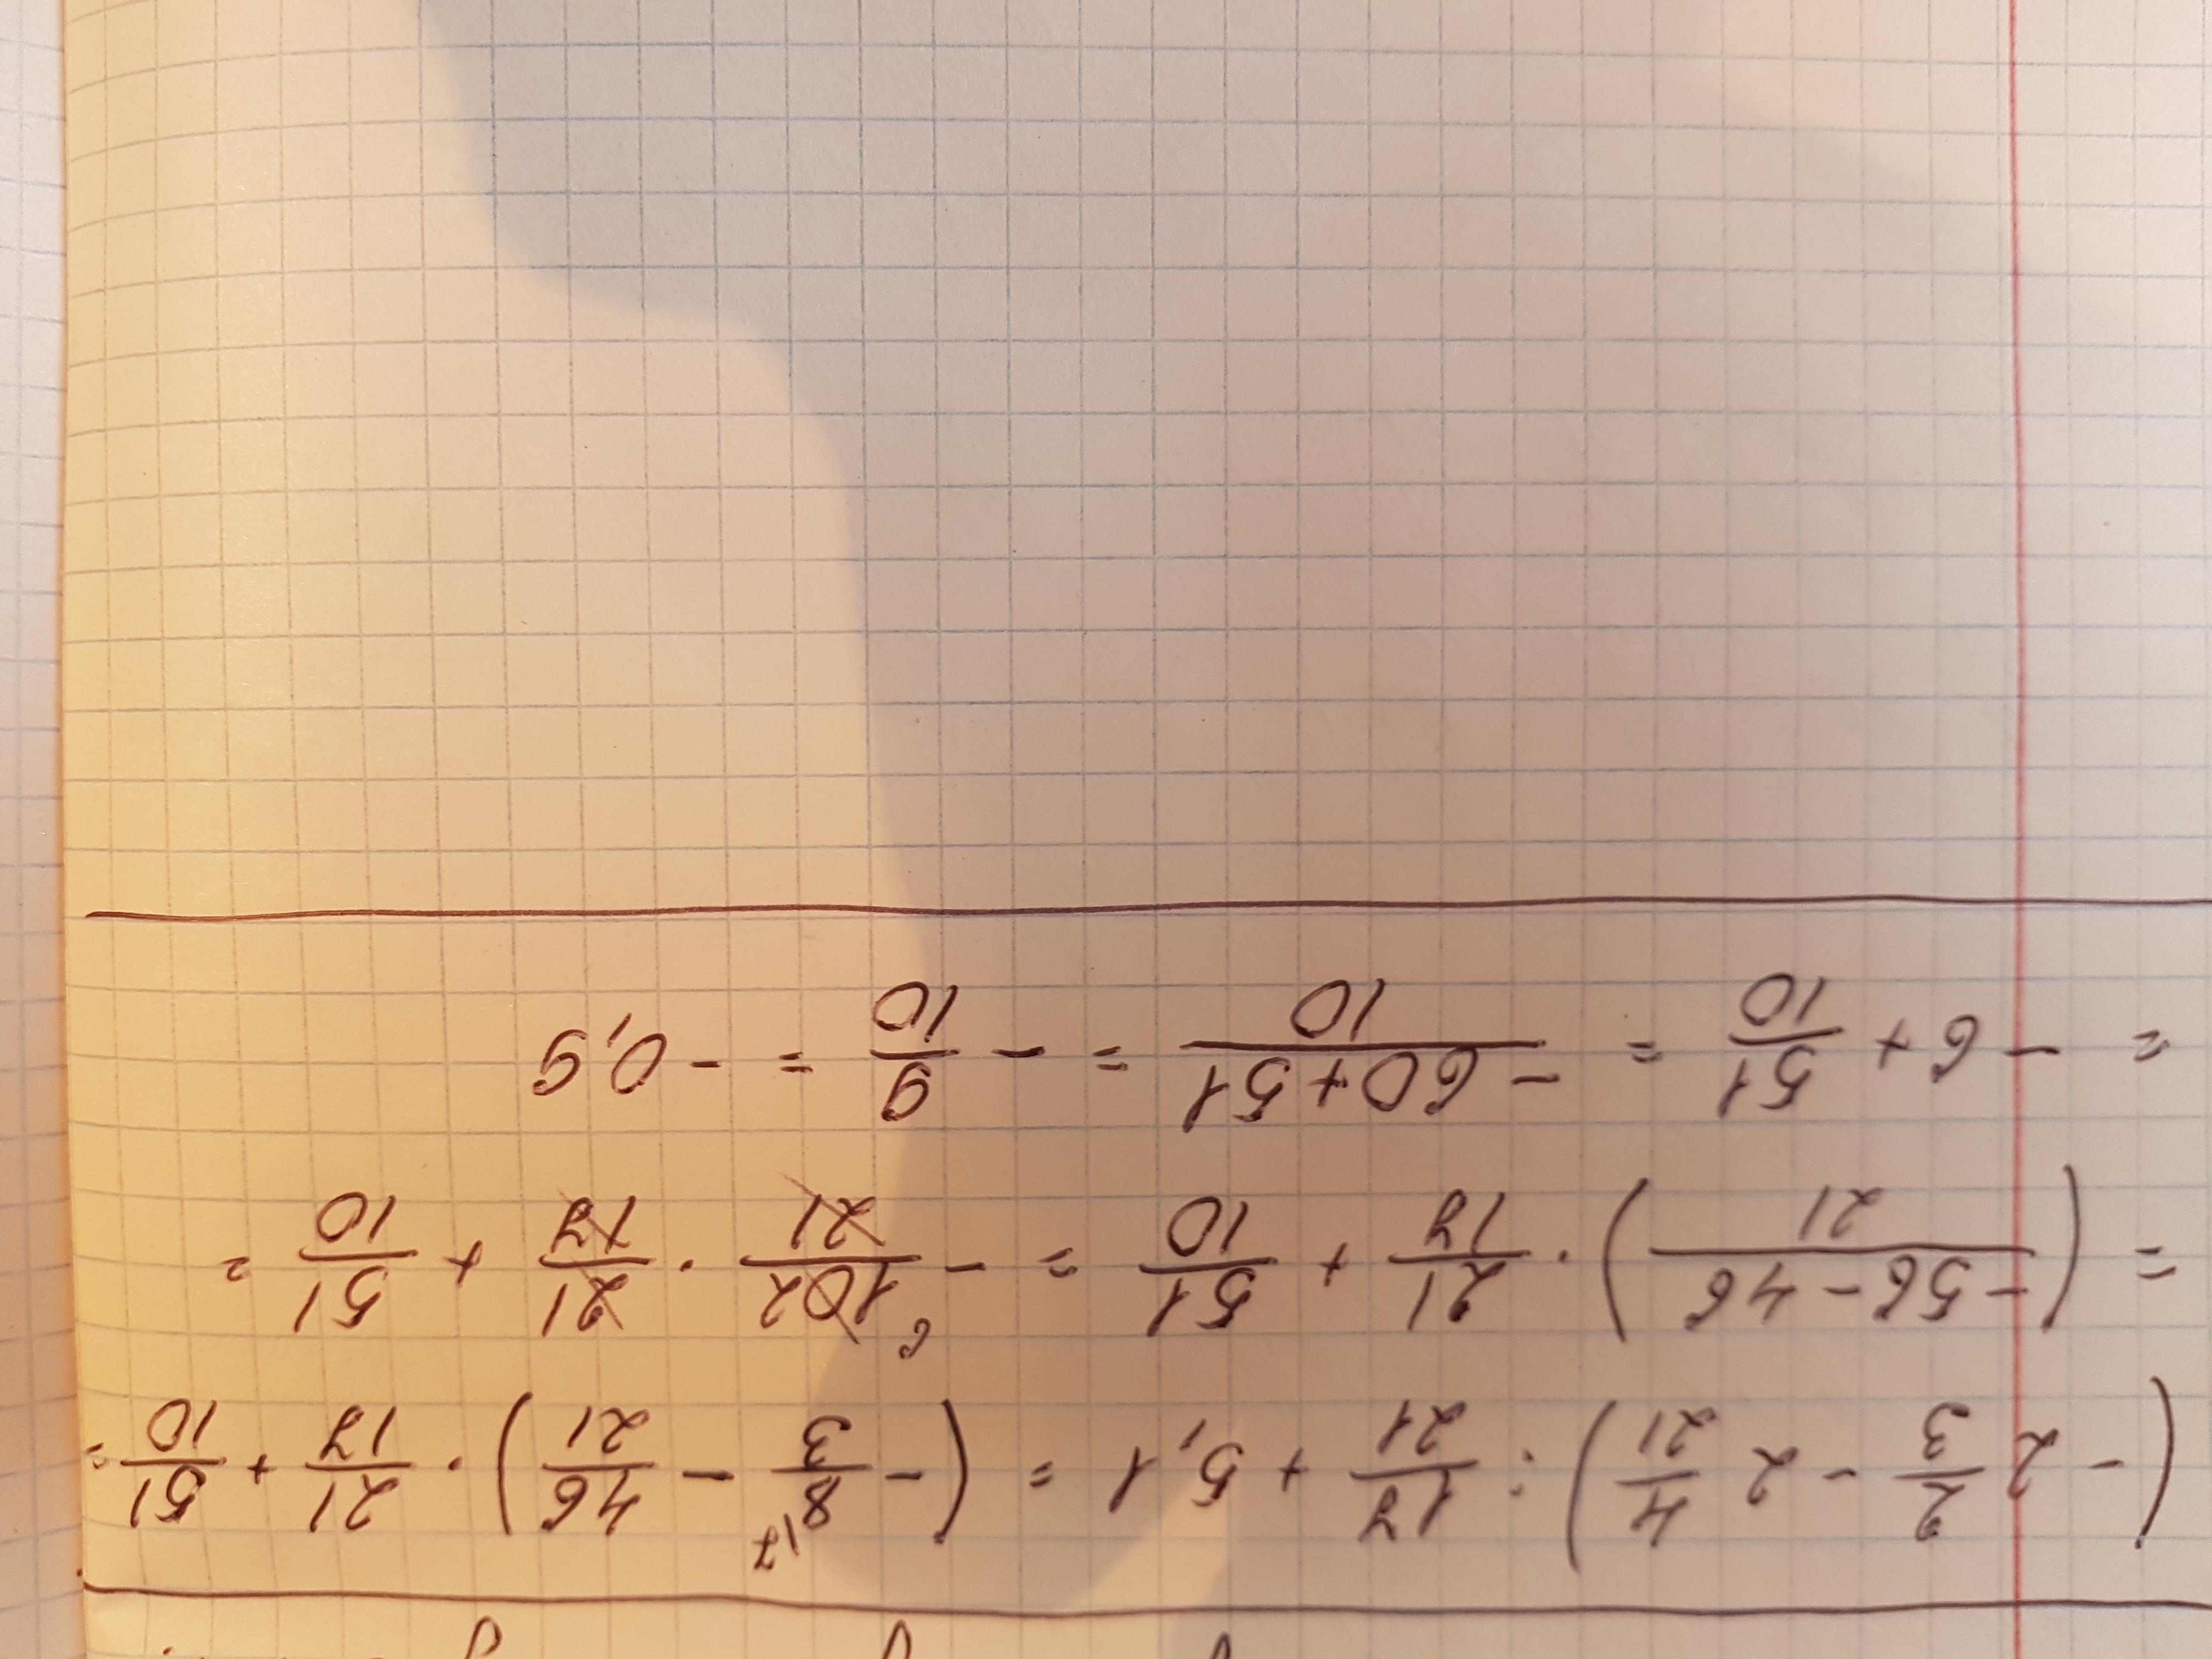 (- 2 2/3 - 2 4/21) : 17/21 + 5,1 = (- 8/3 \7 - 46/21) · 21/17 + 51/10 =
= (- 56 - 46 / 21) · 21/17 + 51/10 = - 102/21 6 · 21/17 + 51/10 =
= - 6 + 51/10 = - 60 + 51 / 10 = - 9/10 = - 0,9